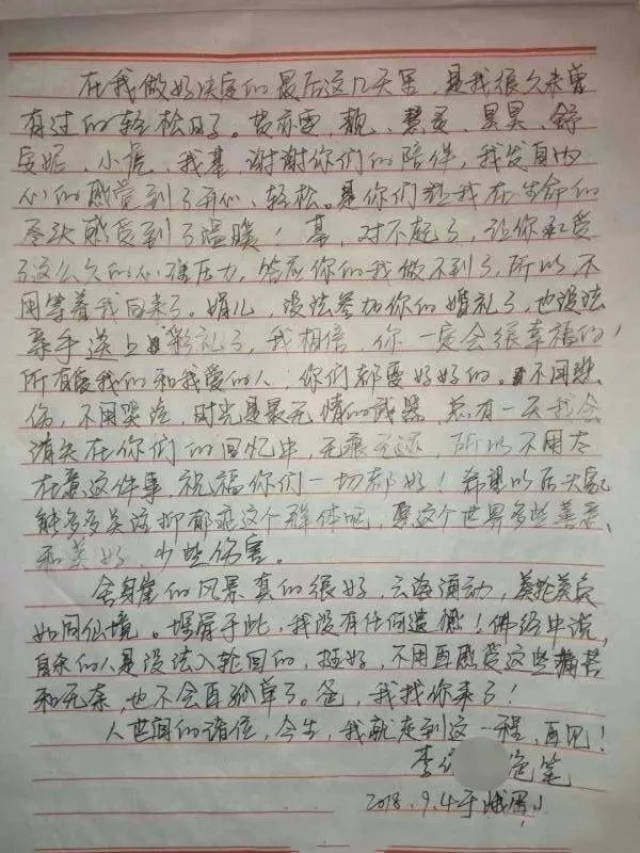 在我做好决定的最后这几天里,是我很久未曾
有过的轻松日子。黄亦雪、靓、慧灵、昊昊、舒
安妮、小虎、我基,谢谢你们的陪伴,我发自内
心的感觉到了开心、轻松。是你们让我在生命的
尽头感受到了温暖!基,对不起了,让你承受
了这么久的心理压力,答应你的我做不到了,所以不
用等着我回来了。娟儿,没法参加你的婚礼了,也没法
亲手送上彩礼了,我相信,你一定会很幸福的!
所有爱我的和我爱的人,你们都要好好的。不用悲
伤,不用哭泣,时光是最无情的武器,总有一天我会
消失在你们的回忆中,无痕无迹,所以不用太
在意这件事,祝福你们一切都好!希望以后大家
能多多关注抑郁症这个群体吧,愿这个世界多些善意、
和美好,少些伤害。
舍身崖的风景真的很好,云海涌动,美轮美奂
如同仙境。埋屏于此,我没有任何遗憾!佛经中说,
自杀的人是没法入轮回的,挺好,不用再感受这些痛苦
和无奈,也不会再孤单了。爸,我找你来了!
人世间的诸位,今生,我就走到这一程,再见!
李 笔
2018.9.4于峨眉山